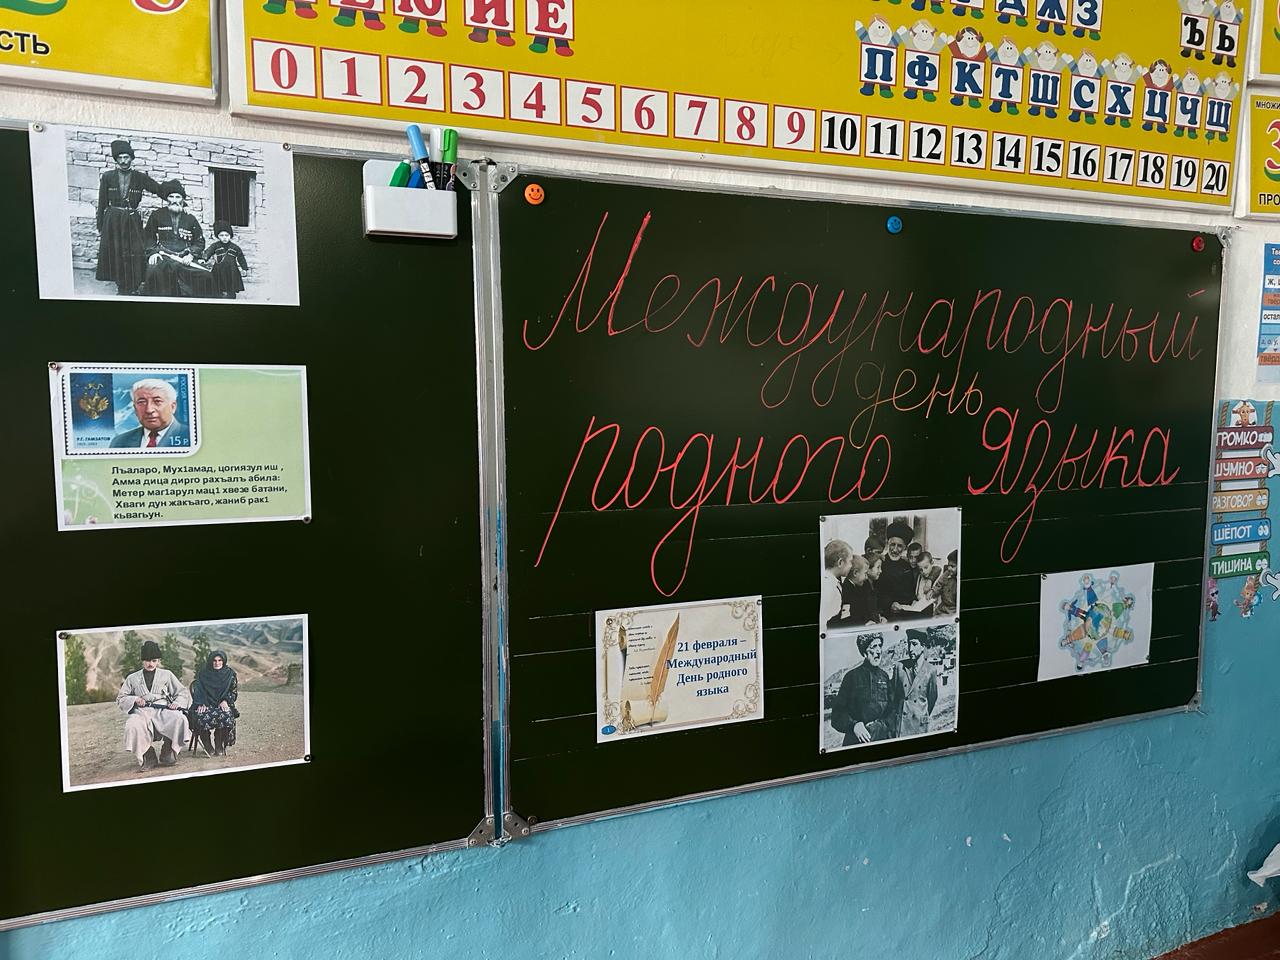 СТЬ
Е
0 1 2 3 4 5 6 7 8 9 10 11 12 13 14 15 16 17 18 19 20
Д Ж З
Ъ Ь
П Ф К Т Ш С Х Ц Ч Щ
Международный
день
родного языка
РОССИЯ
Р.Г. ГАМЗАТОВ
1923-2003
15 Р.
Лъаларо, Мух1амад, цогиязул иш ,
Амма дица дирго рахъалъ абила:
Метер маг1арул мац1 хвезе батани,
Хваги дун жакъаго, жаниб рак1
кьвагьун.
21 февраля –
Международный
День родного
языка
1
ГРОМКО
ШУМНО
РАЗГОВОР
ШЁПОТ
ТИШИНА